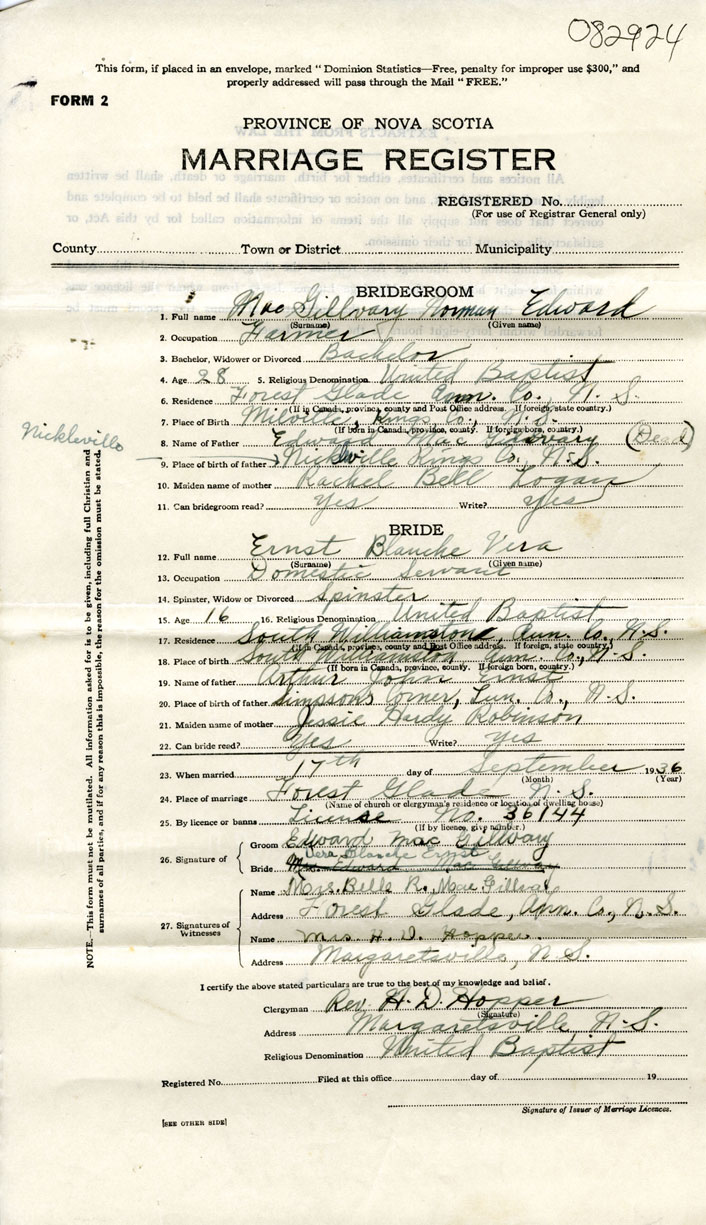 082924
This form, if placed in an envelope, marked "Dominion Statistics—Free, penalty for improper use $300," and
properly addressed will pass through the Mail "FREE."
FORM 2
PROVINCE OF NOVA SCOTIA
MARRIAGE REGISTER
REGISTERED No.
(For use of Registrar General only)
County Town or District Municipality
BRIDEGROOM
1. Full name MacGillvary Norman Edward
(Surname) (Given name)
2. Occupation Farmer
3. Bachelor, Widower or Divorced Bachelor
4. Age 28 5. Religious Denomination United Baptist
6. Residence Forest Glade Ann. Co., N. S.
(If in Canada, province, county and Post Office address. If foreign, state country.)
7. Place of Birth Kings Co., N.S.
(If born in Canada, province, county. If foreign born, country.)
8. Name of Father Edward Mac Gillvary (Dead)
Nickleville
9. Place of birth of father Nickleville Kings Co., N.S.
10. Maiden name of mother Rachel Bell Logan
11. Can bridegroom read? Yes Write? Yes
BRIDE
12. Full name Ernst Blanche Vera
(Surname) (Given name)
13. Occupation Domestic Servant
14. Spinster, Widow or Divorced Spinster
15. Age 16 16. Religious Denomination United Baptist
17. Residence South Williamston, Ann. Co., N. S.
(If in Canada, province, county and Post Office address. If foreign, state country.)
18. Place of birth South Williamston Ann. Co., N. S.
(If born in Canada, province, county. If foreign born, country.)
19. Name of father Arthur John Ernst
20. Place of birth of father Simpsons Corner, Lun. Co., N. S.
21. Maiden name of mother Jessie Hardy Robinson
22. Can bride read? Yes Write? Yes
23. When married 17th day of September 1936
(Month) (Year)
24. Place of marriage Forest Glade N. S.
(Name of church or clergyman's residence or location of dwelling house)
25. By licence or banns License No. 36144
(If by licence, give number.)
26. Signature of Groom Edward Mac Gillvary
Vera Blanche Ernst
Bride Mrs. Edward Mac Gillvary
27. Signatures of Witnesses
Name Mrs. Belle R. Mac Gillvary
Address Forest Glade, Ann. Co., N. S.
Name Mrs. H. D. Hopper
Address Margaretsville, N. S.
I certify the above stated particulars are true to the best of my knowledge and belief.
Clergyman Rev. H. D. Hopper
(Signature)
Address Margaretsville N. S.
Religious Denomination United Baptist
Registered No. Filed at this office day of 19
Signature of Issuer of Marriage Licences.
[SEE OTHER SIDE]
NOTE.—This form must not be mutilated. All information asked for is to be given, including full Christian and
surnames of all parties, and if for any reason this is impossible, the reason for the omission must be stated.